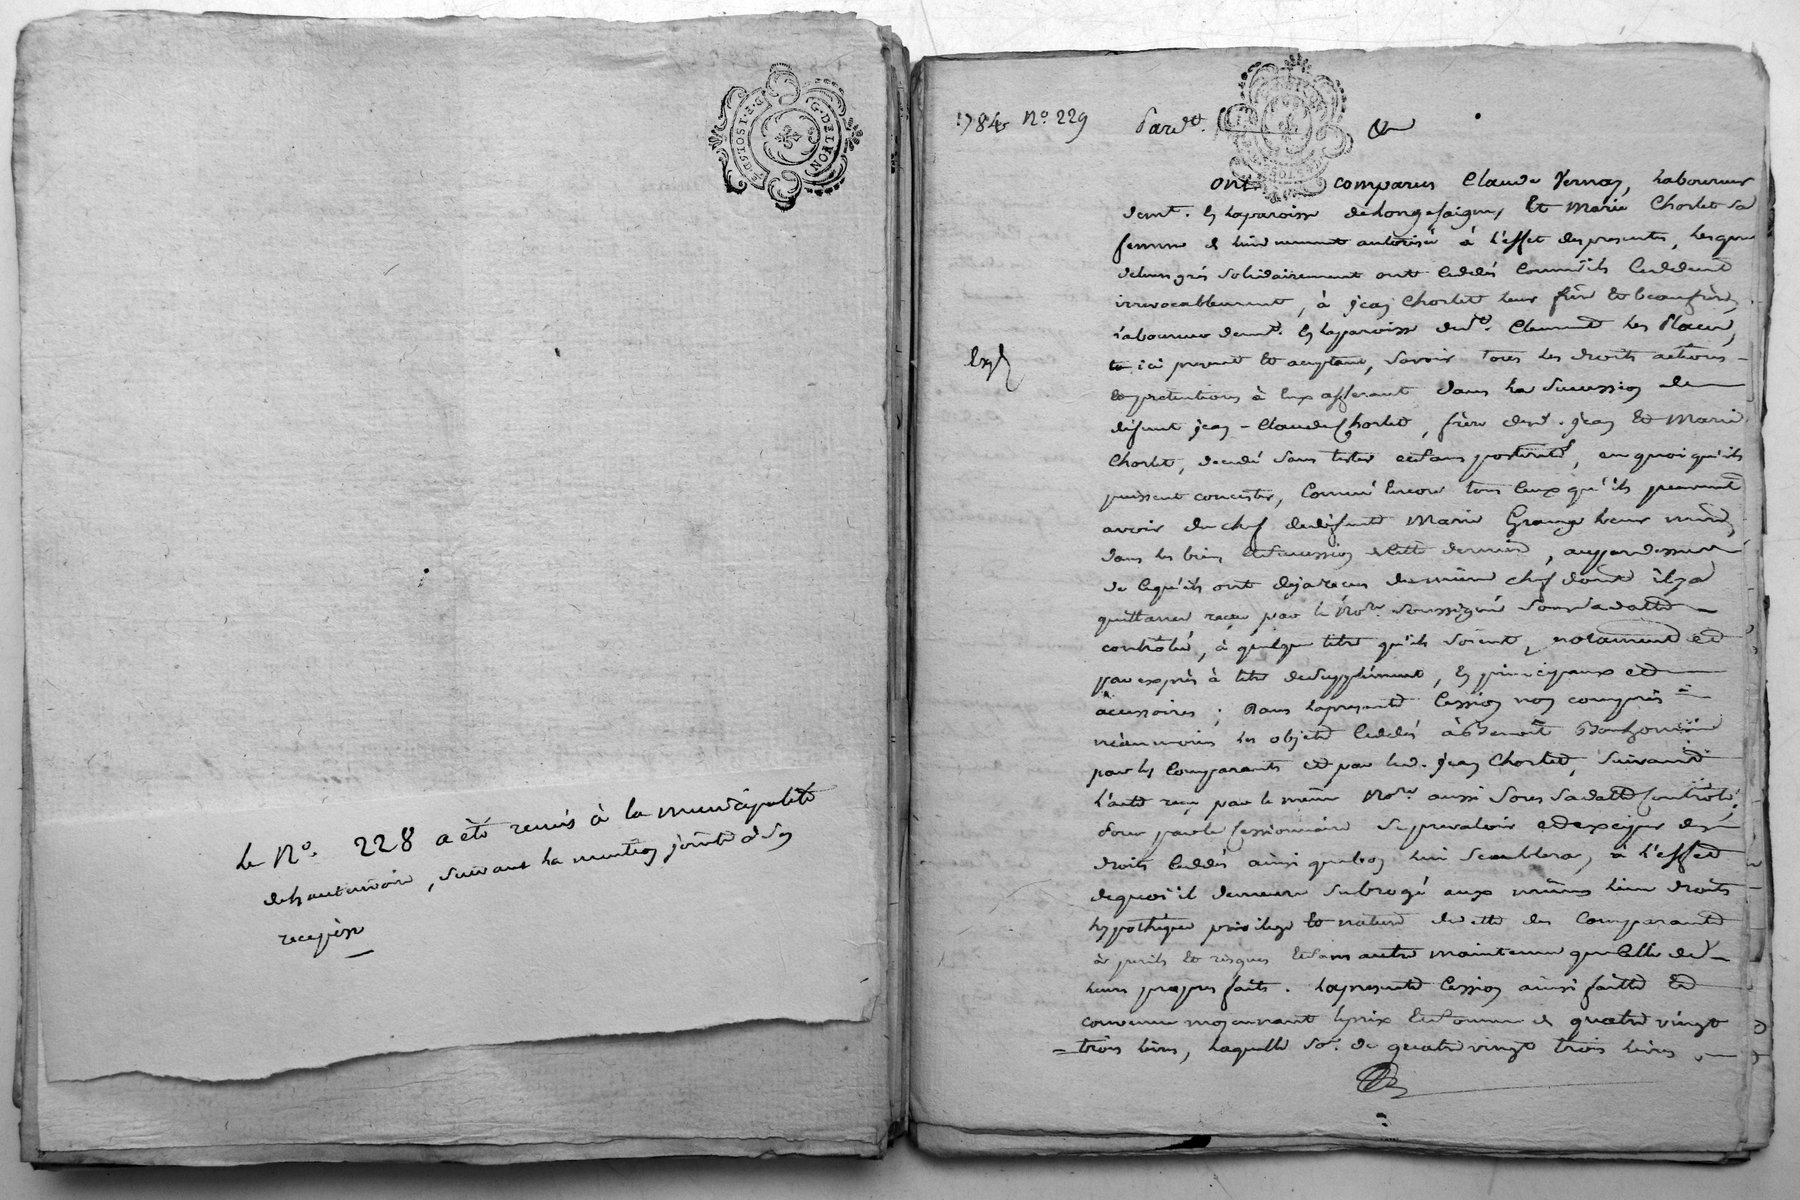 G. DE LYON
le N°. 228 a été remis à la municipalité
de hauterivoire, suivant la mention jointe à son
recepisse
1784 N°. 229
Pardt.
ont comparus Claude Vernay, laboureur
demt. en la paroisse de Longesaigne, Et Marie Chorlet sa
femme de lui dument autorisée à l'effet des presentes, lesquels
de leurs grés solidairement ont Cedés Comme ils Cedent
irrevocablement, à jean Chorlet leur frère Et beaufrère,
laboureur demt. en la paroisse de St. Clement les Places,
ici present Et aceptant, savoir tous les droits actions
Et pretentions à Eux afferant dans la Sucession de
défunt jean-Claude Chorlet, frère desd. jean Et Marie
Chorlet, decedé sans tester et sans posterité, en quoi qu'ils
puissent concister, Comme Encore tous Ceux qu'ils peuvent
avoir du chef de defunte Marie Grange leur mère,
dans les biens Et Sucession de cette dernière, au par dessus
de Ce qu'ils ont deja recus du même chef dont il y a
quittance reçue par le Nore. soussigné sous sa datte
controlée, à quelque titre qu'ils soient, notament et
par exprès à titre de Supplément, En principaux et
accessoires; Dans la presente Cession non compris
néanmoins les objets Cedés à Benoît
par les Comparants et par led. jean Chorlet, Suivant
l'acte reçu par le même Nore. aussi sous sa datte Controlé,
pour par le Cessionnaire se prevaloir et exciper des
droits Cedés ainsi que bon lui Semblera, à l'effet
de quoi il demeure subrogé aux mêmes lieu droits
hypothèque privilege Et nature de dette des Comparants
à perils Et risques Et sans autre maintenue que Celle de
leurs propres faits. La presente Cession ainsi faitte Et
convenue moyennant le prix Et Somme de quatre vingt
trois livres, laquelle So. de quatre vingt trois livres